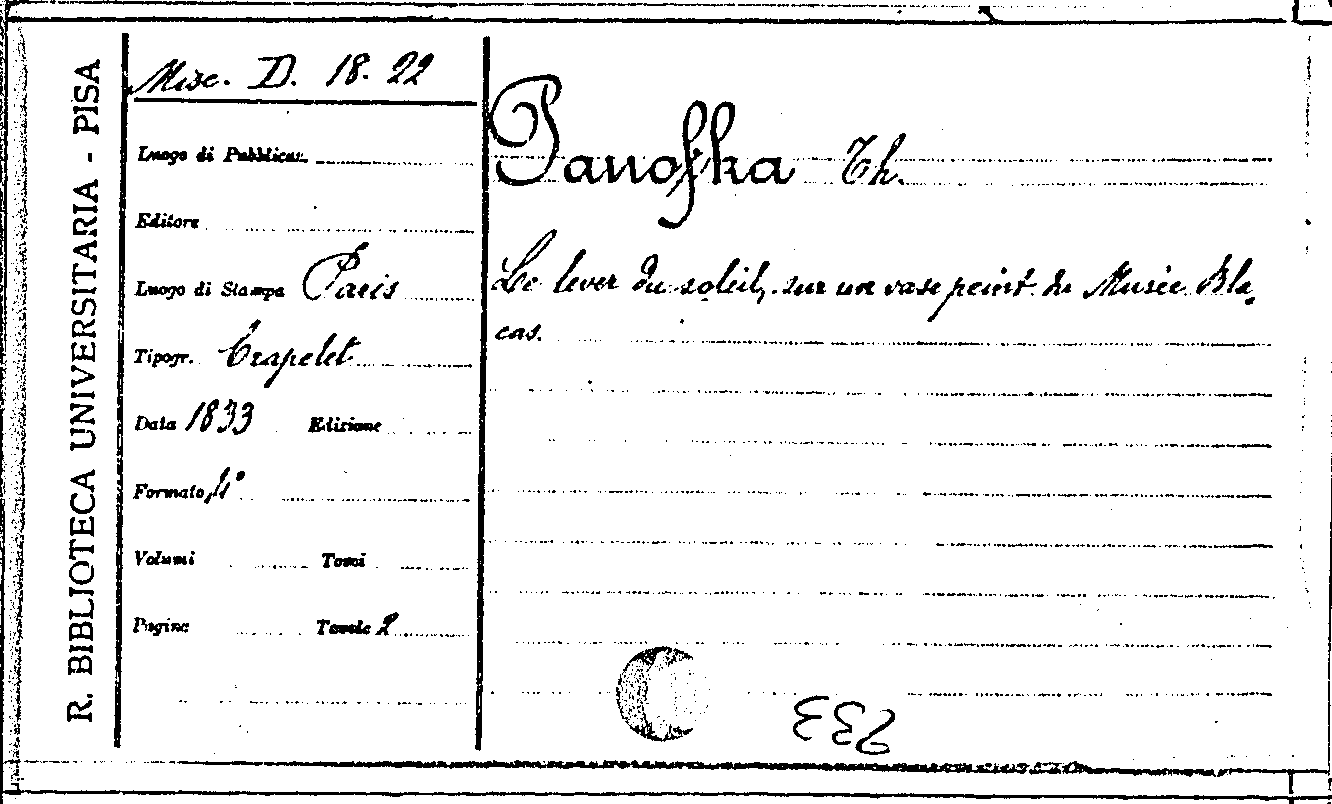 R. BIBLIOTECA UNIVERSITARIA - PISA
Misc. D. 18. 22
Luogo di Pubblicaz.
Editore
Luogo di Stampa Paris
Tipogr. Crapelet
Data 1833 Edizione
Formato 4°
Volumi Tomi
Pagine Tavole 2
Panofka Th.
Le lever du soleil, sur un vase peint du Musée Bla-
cas.
233